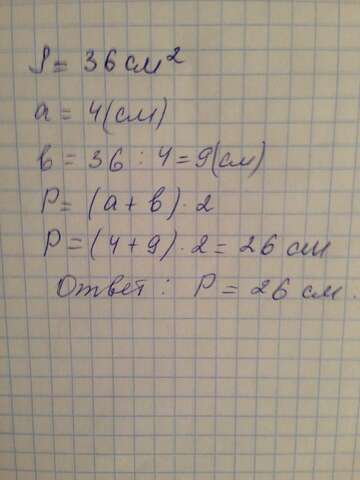 S = 36 см²
a = 4(см)
в = 36 : 4 = 9(см)
P = (a + в) · 2
P = (4 + 9) · 2 = 26 см
Ответ : P = 26 см.